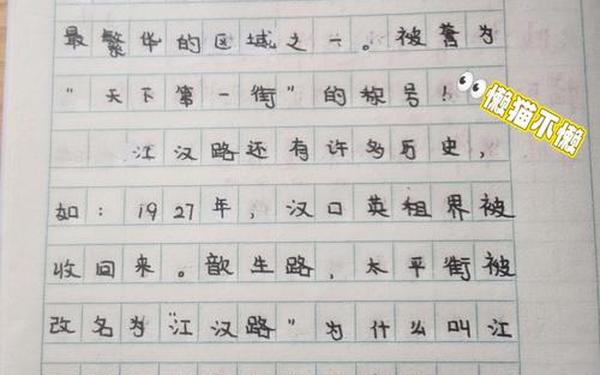 最繁华的区域之一。被誉为
“天下第一街”的称号!
懒猫不懒
江汉路还有许多历史,
如:1927年,汉口英租界被
收回来。歆生路,太平街被
改名为“江汉路”为什么叫江